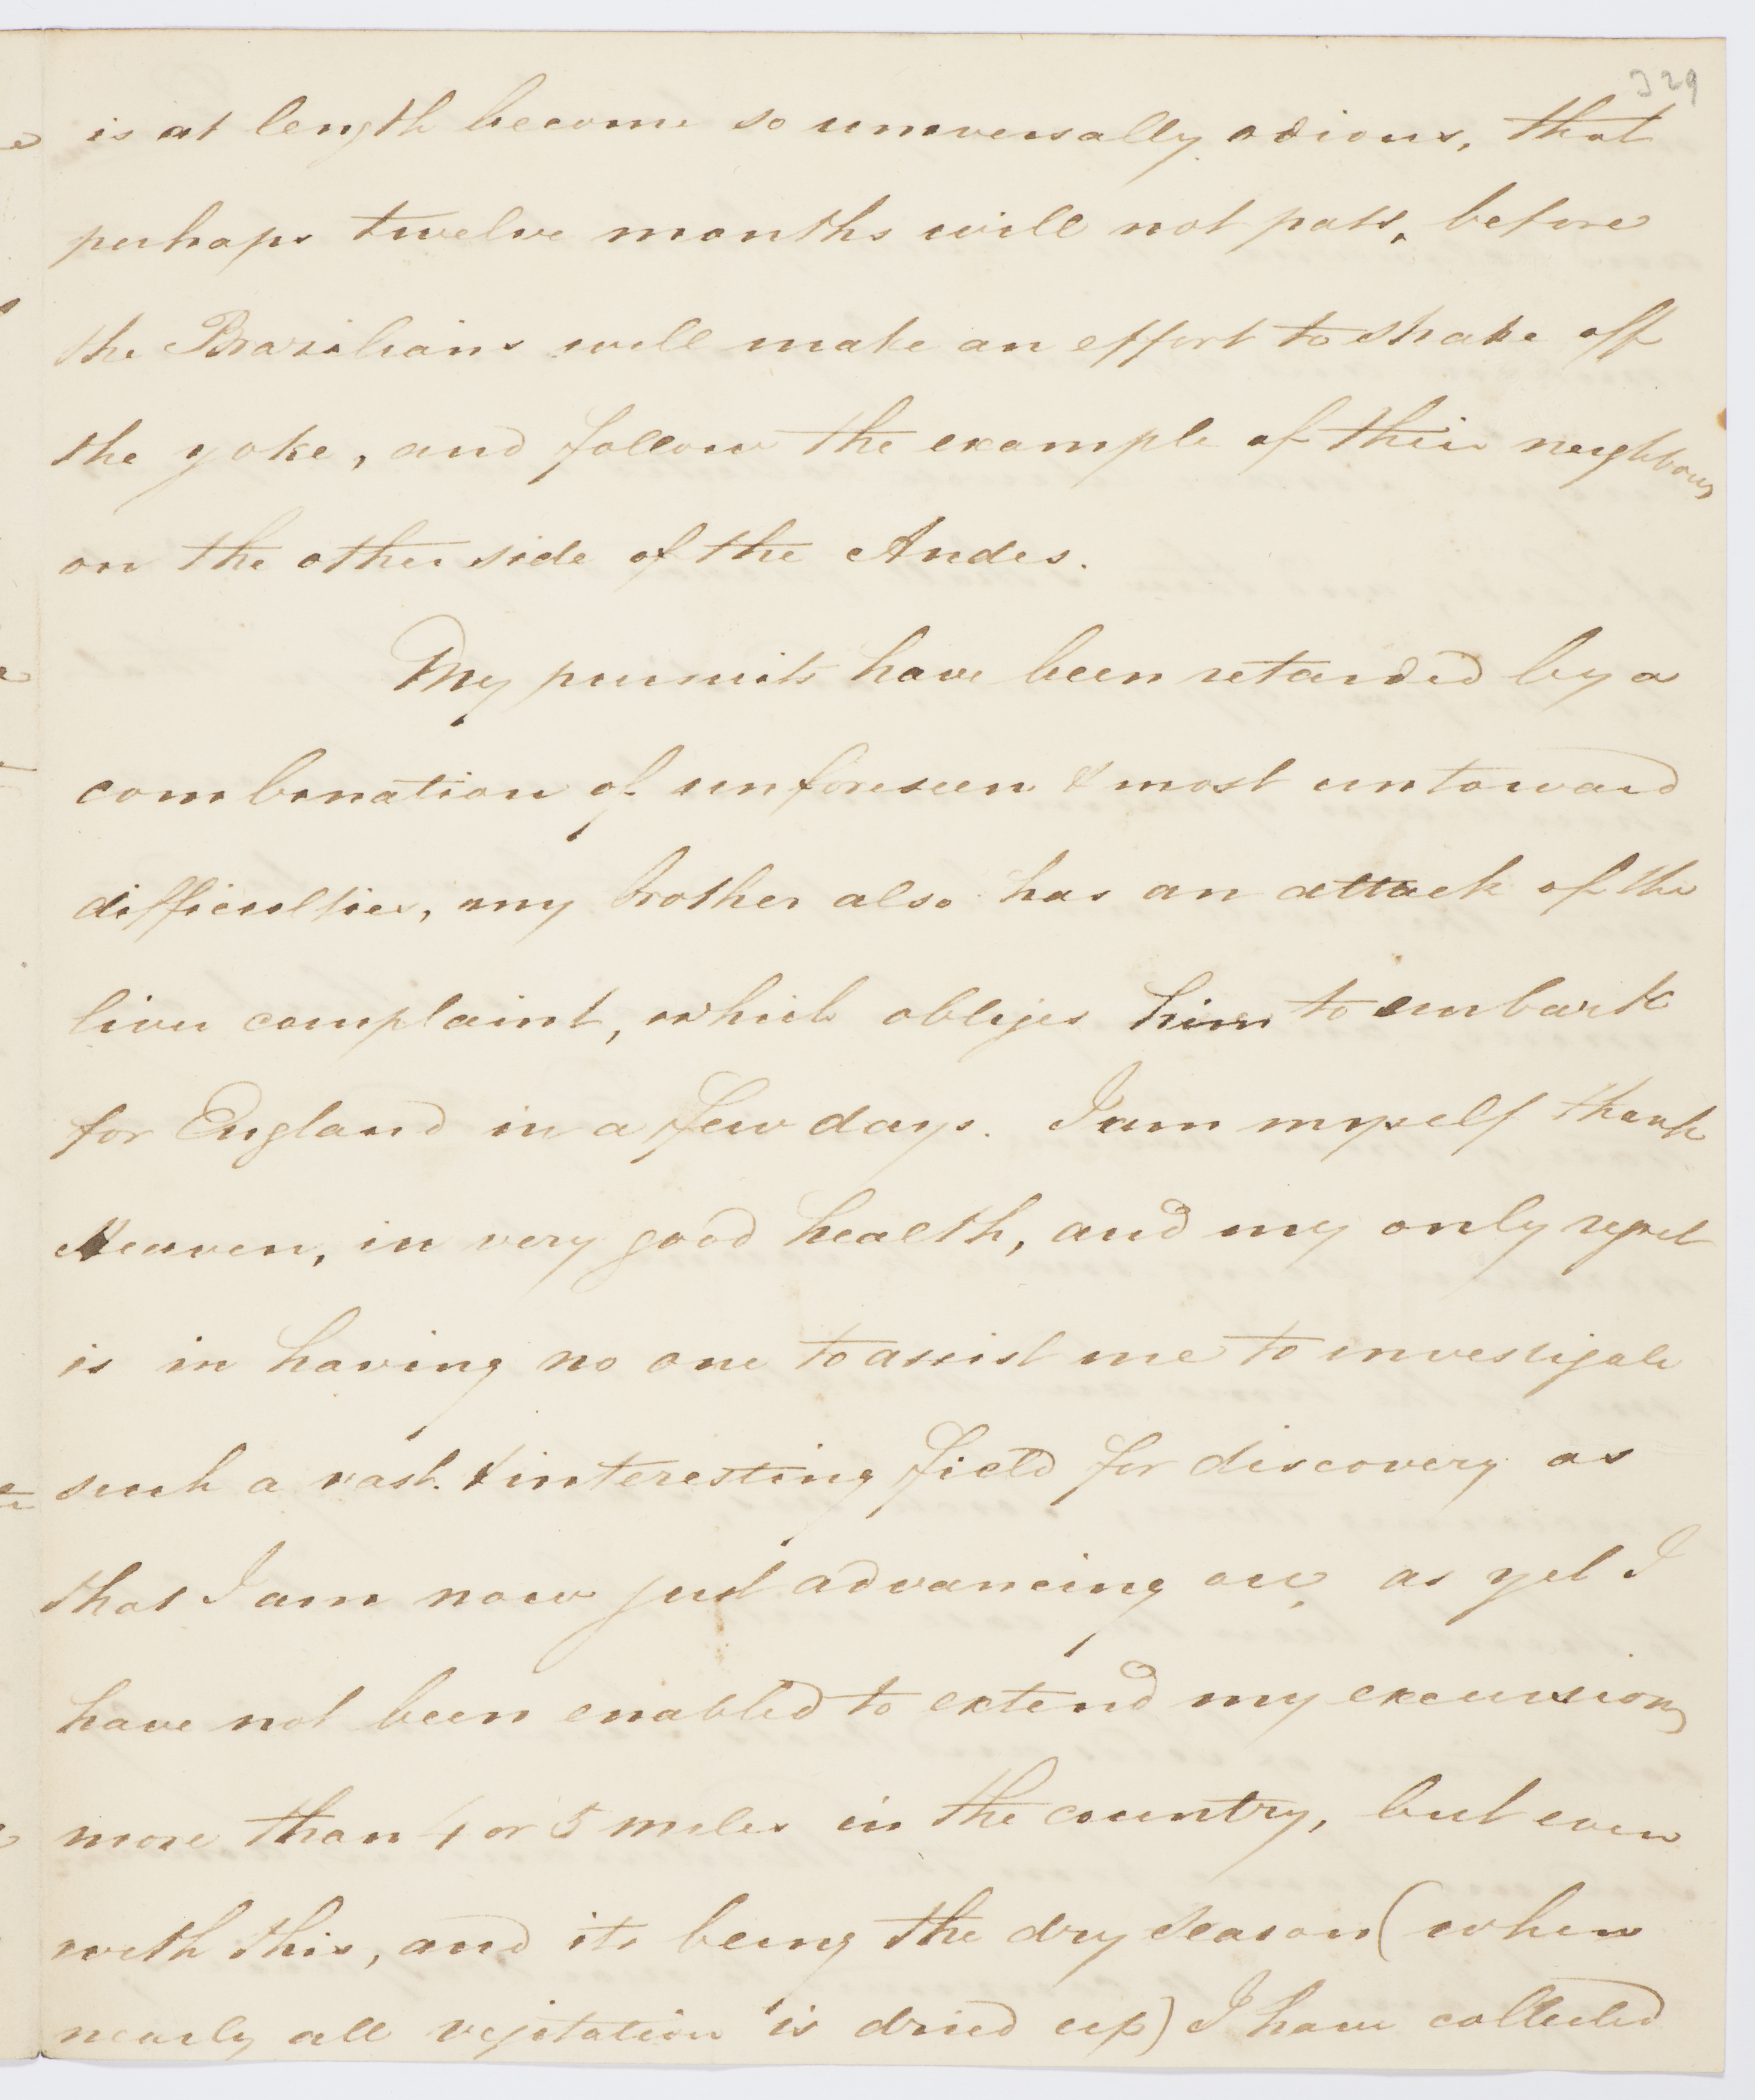 329
is at length become so universally odious, that
perhaps twelve months will not pass, before
the Brazilians will make an effort to shake off
the yoke, and follow the example of their neighbours
on the other side of the Andes.
My pursuits have been retarded by a
combination of unforeseen & most untoward
difficulties, my brother also has an attack of the
liver complaint, which obliges him to embark
for England in a few days. I am myself thank
Heaven, in very good health, and my only regret
is in having no one to assist me to investigate
such a vast & interesting field for discovery as
that I am now just advancing on, as yet I
have not been enabled to extend my excursions
more than 4 or 5 miles in the country, but even
with this, and its being the dry season (when
nearly all vegitation is dried up) I have collected